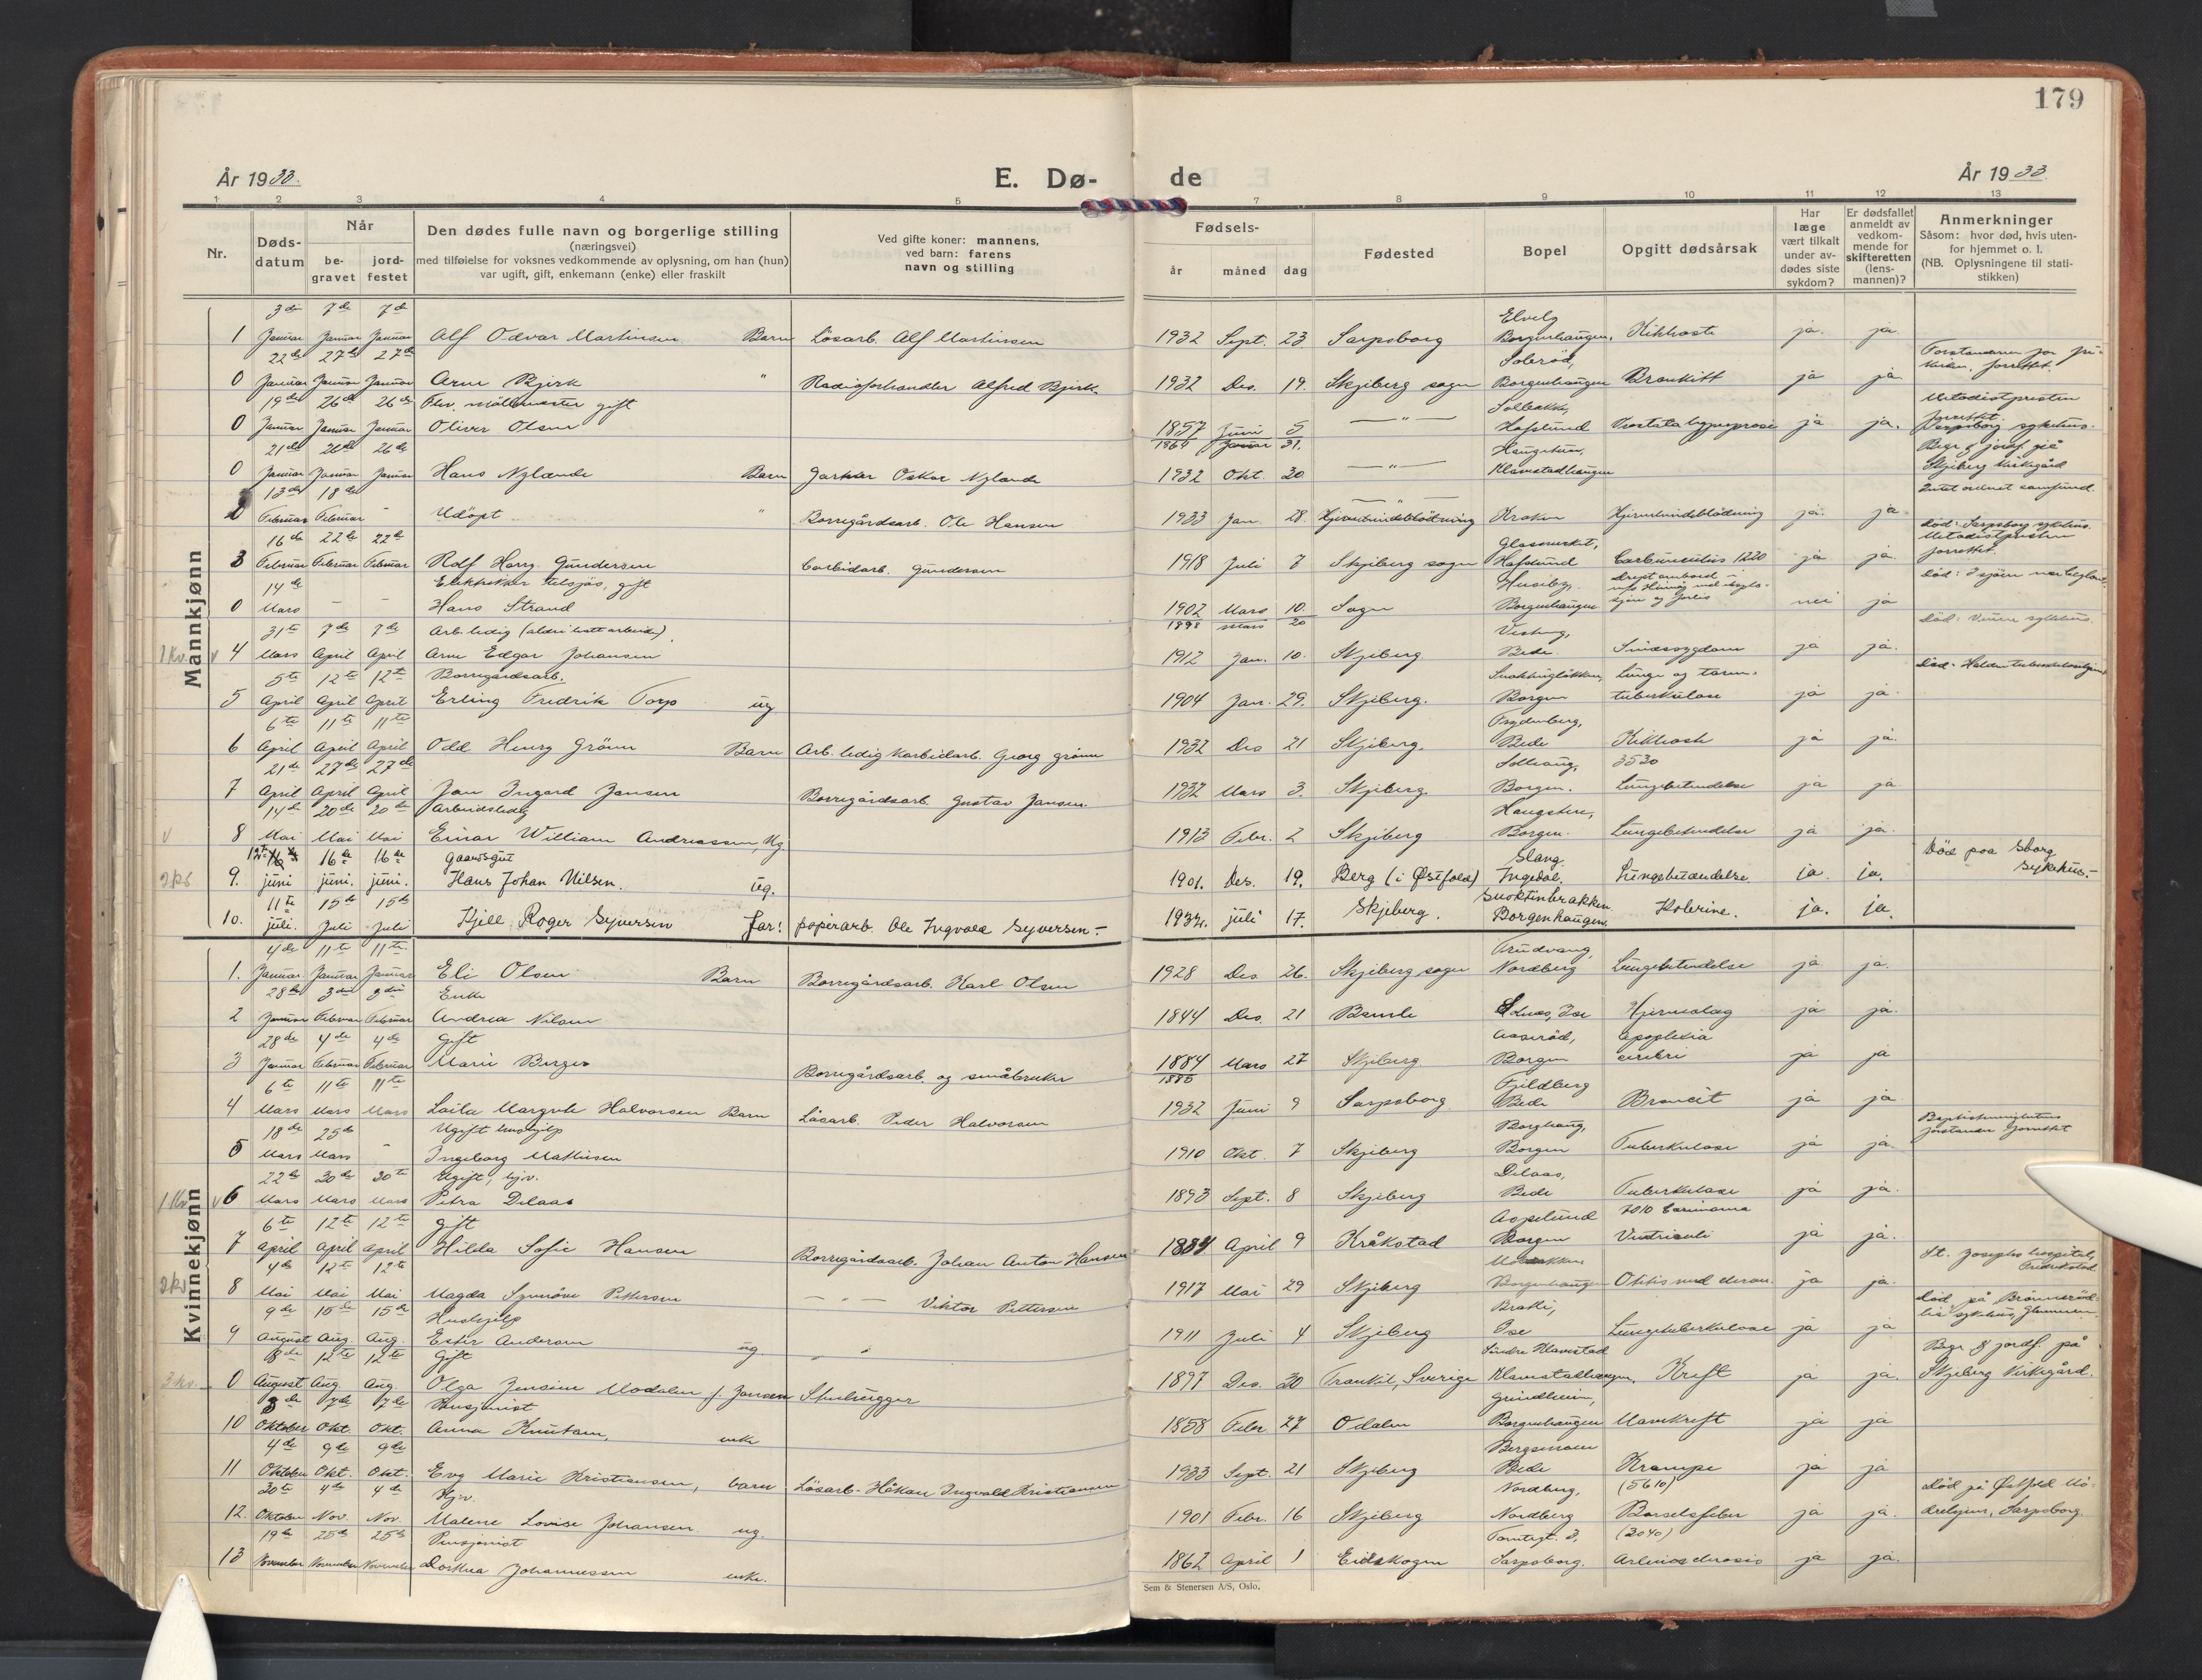 179
År 1933.
E. Dø-
de
År 1933.
1 2 3 4 5 7 8 9 10 11 12 13
Nr.
Døds-
datum
Når
be-
gravet
jord-
festet
Den dødes fulle navn og borgerlige stilling
(næringsvei)
med tilføielse for voksnes vedkommende av oplysning, om han (hun)
var ugift, gift, enkemann (enke) eller fraskilt
Ved gifte koner: mannens,
ved barn: farens
navn og stilling
Fødsels-
år
måned
dag
Fødested
Bopel
Opgitt dødsårsak
Har
læge
vært tilkalt
under av-
dødes siste
sykdom?
Er dødsfallet
anmeldt av
vedkom-
mende for
skifteretten
(lens-
mannen)?
Anmerkninger
Såsom: hvor død, hvis uten-
for hjemmet o. l.
(NB. Oplysningene til stati-
stikken)
Mannkjønn
3die 7de 7de Elvely
1 Januar Januar Januar Alf Odvar Martinsen Barn Løsarb. Alf Martinsen 1932 Sept. 23 Sarpsborg Borgenhaugen, Kikhoste ja. ja.
22de 27de 27de Solerød,
0 Januar Januar Januar Arne Bjørk " Radioforhandler Alfred Bjørk 1932 Des. 19. Skjeberg sogn Borgenhaugen Bronkitt ja ja
19de 26de 26de gift Solbakke, Metodistpresten
0 Januar Januar Januar Oliver Olsen 1857 Juni 5 — " — Hafslund ja ja. Sarpsborg sykehus.
21de 26de 26de 31.
0 Januar Januar Januar Hans Nylande Barn Oskar Nylande 1932 Okt. 20 — " — Klavestadhaugen Skjeberg kirkegård
13de 18de — " —
2 Februar Februar - Udøpt " Borregårdsarb. Ole Hansen 1933 Jan. 28. Hjernehindeblødning ja. ja Død: Sarpsborg sykehus.
16de 22de 22de Glassverket, Metodistpresten
3 Februar Februar Februar Rolf Harry Gundersen Carbidarb. Gundersen 1918 Juli 7 Skjeberg sogn Hafslund 1220 ja ja. forrettet.
14de gift Huseby,
0 Mars - - Hans Strand 1902 Mars 10. Sogn Borgenhaugen nei ja
31te 7de 7de Arb. ledig 1898 Mars 20
1 Kv. v 4 Mars April April Arne Edgar Johansen 1912 Jan. 10. Skjeberg. Bede Sindssygdom ja ja.
5te 12te 12te Borregårdsarb. Lunge og tarm-
5 April April April Erling Fredrik Torp ug 1904 Jan. 29. Skjeberg. Borgen tuberkulose ja ja
6te 11te 11te Frydenberg,
6 April April April Odd Henry Grønn Barn Arb. ledig karbidarb. Georg Grønn 1932 Des 21 Skjeberg. Bede Kikhoste ja ja.
21de 27de 27de Solhaug, 3530
7 April April April Jan Ingard Jansen Borregårdsarb. Gustav Jansen. 1932 Mars 3. Skjeberg. Borgen. Lungebetendelse ja ja.
14de 20de 20de Arbeidsledig
v 8 Mai Mai Mai Einar William Andreassen, Ug. 1913 Febr. 2 Skjeberg Borgen. Lungebetendelse ja ja.
12te 16de 16de gaardsgut Slang. Død paa Sborg
9. juni juni. juni. Hans Johan Nilsen. ug. 1901. Des. 19. Berg (i Østfold) Ingedal. Lungebetændelse ja. ja. sykehus.-
11te 15de 15de
10. juli. Juli Juli Kjell Roger Syversen Far: papirarb. Ole Ingvald Syversen.- 1932. juli 17. Skjeberg. Borgenhaugen. Kolerine. ja. ja.
Kvinnekjønn
4de 11te 11te Trudvang,
1. Januar Januar Januar Eli Olsen Barn Borregårdsarb. Karl Olsen 1928 Des 26. Skjeberg sogn Nordberg Lungebetendelse ja ja.
28de 3die 3die Enke
2 Januar Februar Februar Andrea Nilsen 1844 Des. 21 Bamle Ise Hjerneslag ja ja.
28de 4de 4de Gift Aaserød, Apoplexia
3 Januar Februar Februar Marie Berger Borregårdsarb. og småbruker 1884 Mars 27 Skjeberg. Borgen cerebri ja ja
6te 11te 11te Fjeldberg
4 Mars Mars Mars Laila Margrete Halvorsen Barn Løsarb. Peder Halvorsen 1932 Juni 9 Sarpsborg Bede ja ja
18de 25de Ugift hushjelp Borghaug,
5 Mars Mars - Ingeborg Mathisen 1910 Okt. 7 Skjeberg Borgen Tuberkulose ja ja
22de 30te 30te Ugift, hjv. Delaas,
1 Kv v 6 Mars Mars Mars Petra Delaas 1893 Sept. 8 Skjeberg Bede Tuberkulose ja ja.
6te 12te 12te gift Aspelund
7 April April April Hilda Sofie Hansen Borregårdsarb. Johan Anton Hansen 1884 April 9 Kråkstad Borgen Ventriculi ja ja.
4de 12te 12te St. Josephs hospital,
8 Mai Mai Mai Magda Synnøve Pettersen — " — Viktor Pettersen 1917 Mai 29 Skjeberg Borgenhaugen ja ja. Fredrikstad
9de 15de 15de Hushjelp Brekke,
9 August Aug. Aug. Ester Andersen ug. 1911 Juli 4 Skjeberg Ise Lungetuberkulose ja ja
8de 12te 12te Gift Søndre Klavestad Begr. & jordf. på
3 kv. 0 August Aug. Aug. Olga Jensine Modalen f. Jansen Stenhugger 1897 Des. 30 Sverige Klavestadhaugen, Kreft ja ja. Skjeberg Kirkegård.
3de 7de 7de Pensjonist Grindheim,
10 Oktober Okt. Okt. Anna Knutsen, enke 1858 Febr. 27 Odalen Borgenhaugen Mavekreft ja ja
4de 9de 9de Bergsmoen
11 Oktober Okt. Okt. Evy Marie Kristiansen, barn Løsarb. Håkon Ingvald Kristiansen 1933 Sept. 21 Skjeberg Bede Krampe ja ja
30te 4de 4de Hjv. Nordberg, (5610)
12. Oktober Nov. Nov. Malene Lovise Johansen. ug. 1901 Febr. 16 Skjeberg Nordberg Barselsfeber ja ja. Sarpsborg.
19de 25de 25de Pensjonist Tomtegt. 3, (2040)
13 November November November Dorthea Johannessen enke. 1862 April 1 Eidskogen Sarpsborg. ja ja.
Sem & Stenersen A/S, Oslo.